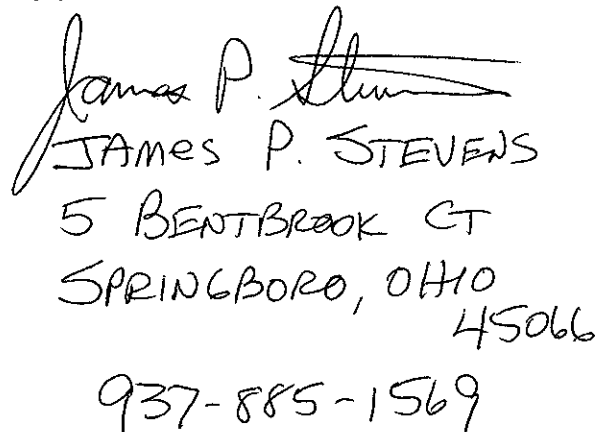 James P. Stevens
JAMes P. STEVENS
5 BENTBROOK CT
SPRINGBORO, OHIO
45066
937-885-1569